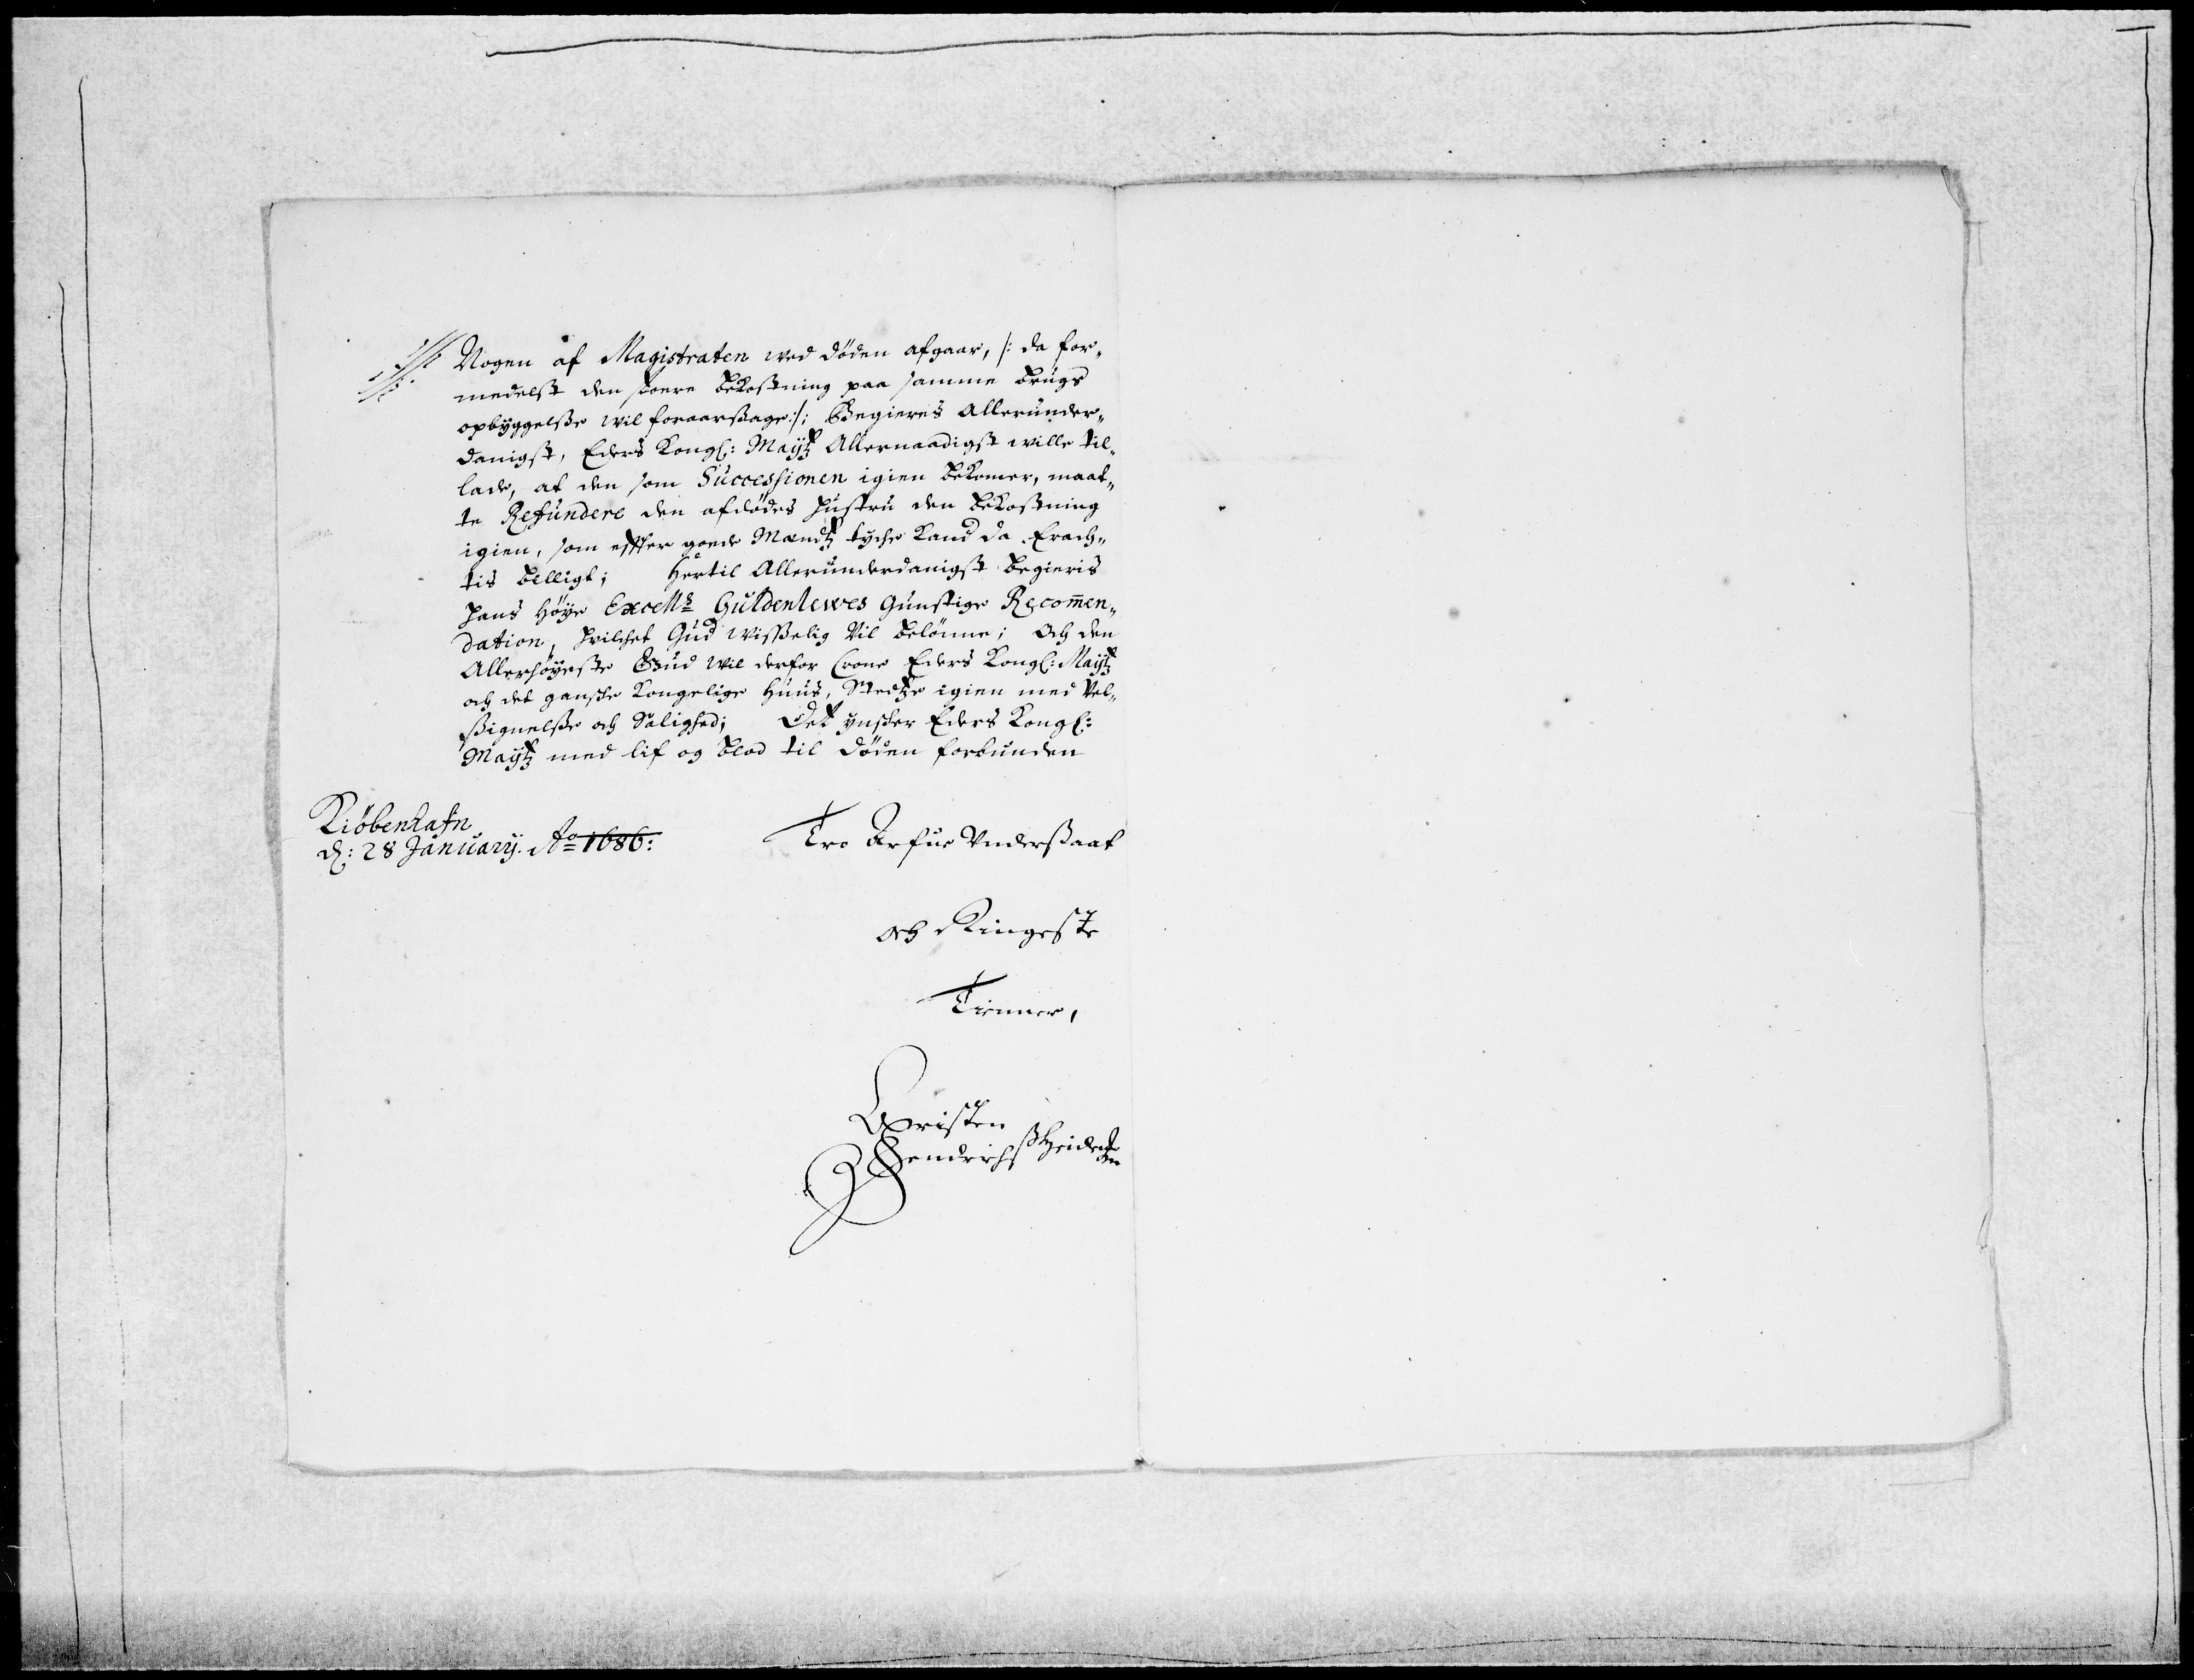 Nogen af Magistraten ved Døden afgaar, /: da for„
medelst den stoere bekostning paa samme brugs
opbyggelsse vil foraarssage :/: Begieres Allerunder„
danigst, Eders Kongl: Mayt Allernaadigst wille til„
lade, at den som Successionen igien bekomer, maat„
te Refundere den afdødes Hustru den bekostning
igien, som effter goede Mændz tyche kand da Erach„
tis billigt; Hertil Allerunderdanigst begieris
Hans Høye Excells Guldenlewes Gunstige Recomen„
dation, hvilchet Gud visselig vil belønne; och den
Allerhøyeste Gud wil derfor Crone Eders Kongl: Mayt
och det gansche Kongelige Huus, Stedtze igien med Vel„
ssignelsse och Salighed; Det ynscher Eders Kongl:
Mayt med lif og blod til døden forbunden
Kiøbenhafn
d: 28 January. Ao 1686:
Tro Arfue Vnderssaat
och Ringeste
Tienner,
Christen
Hendrichss